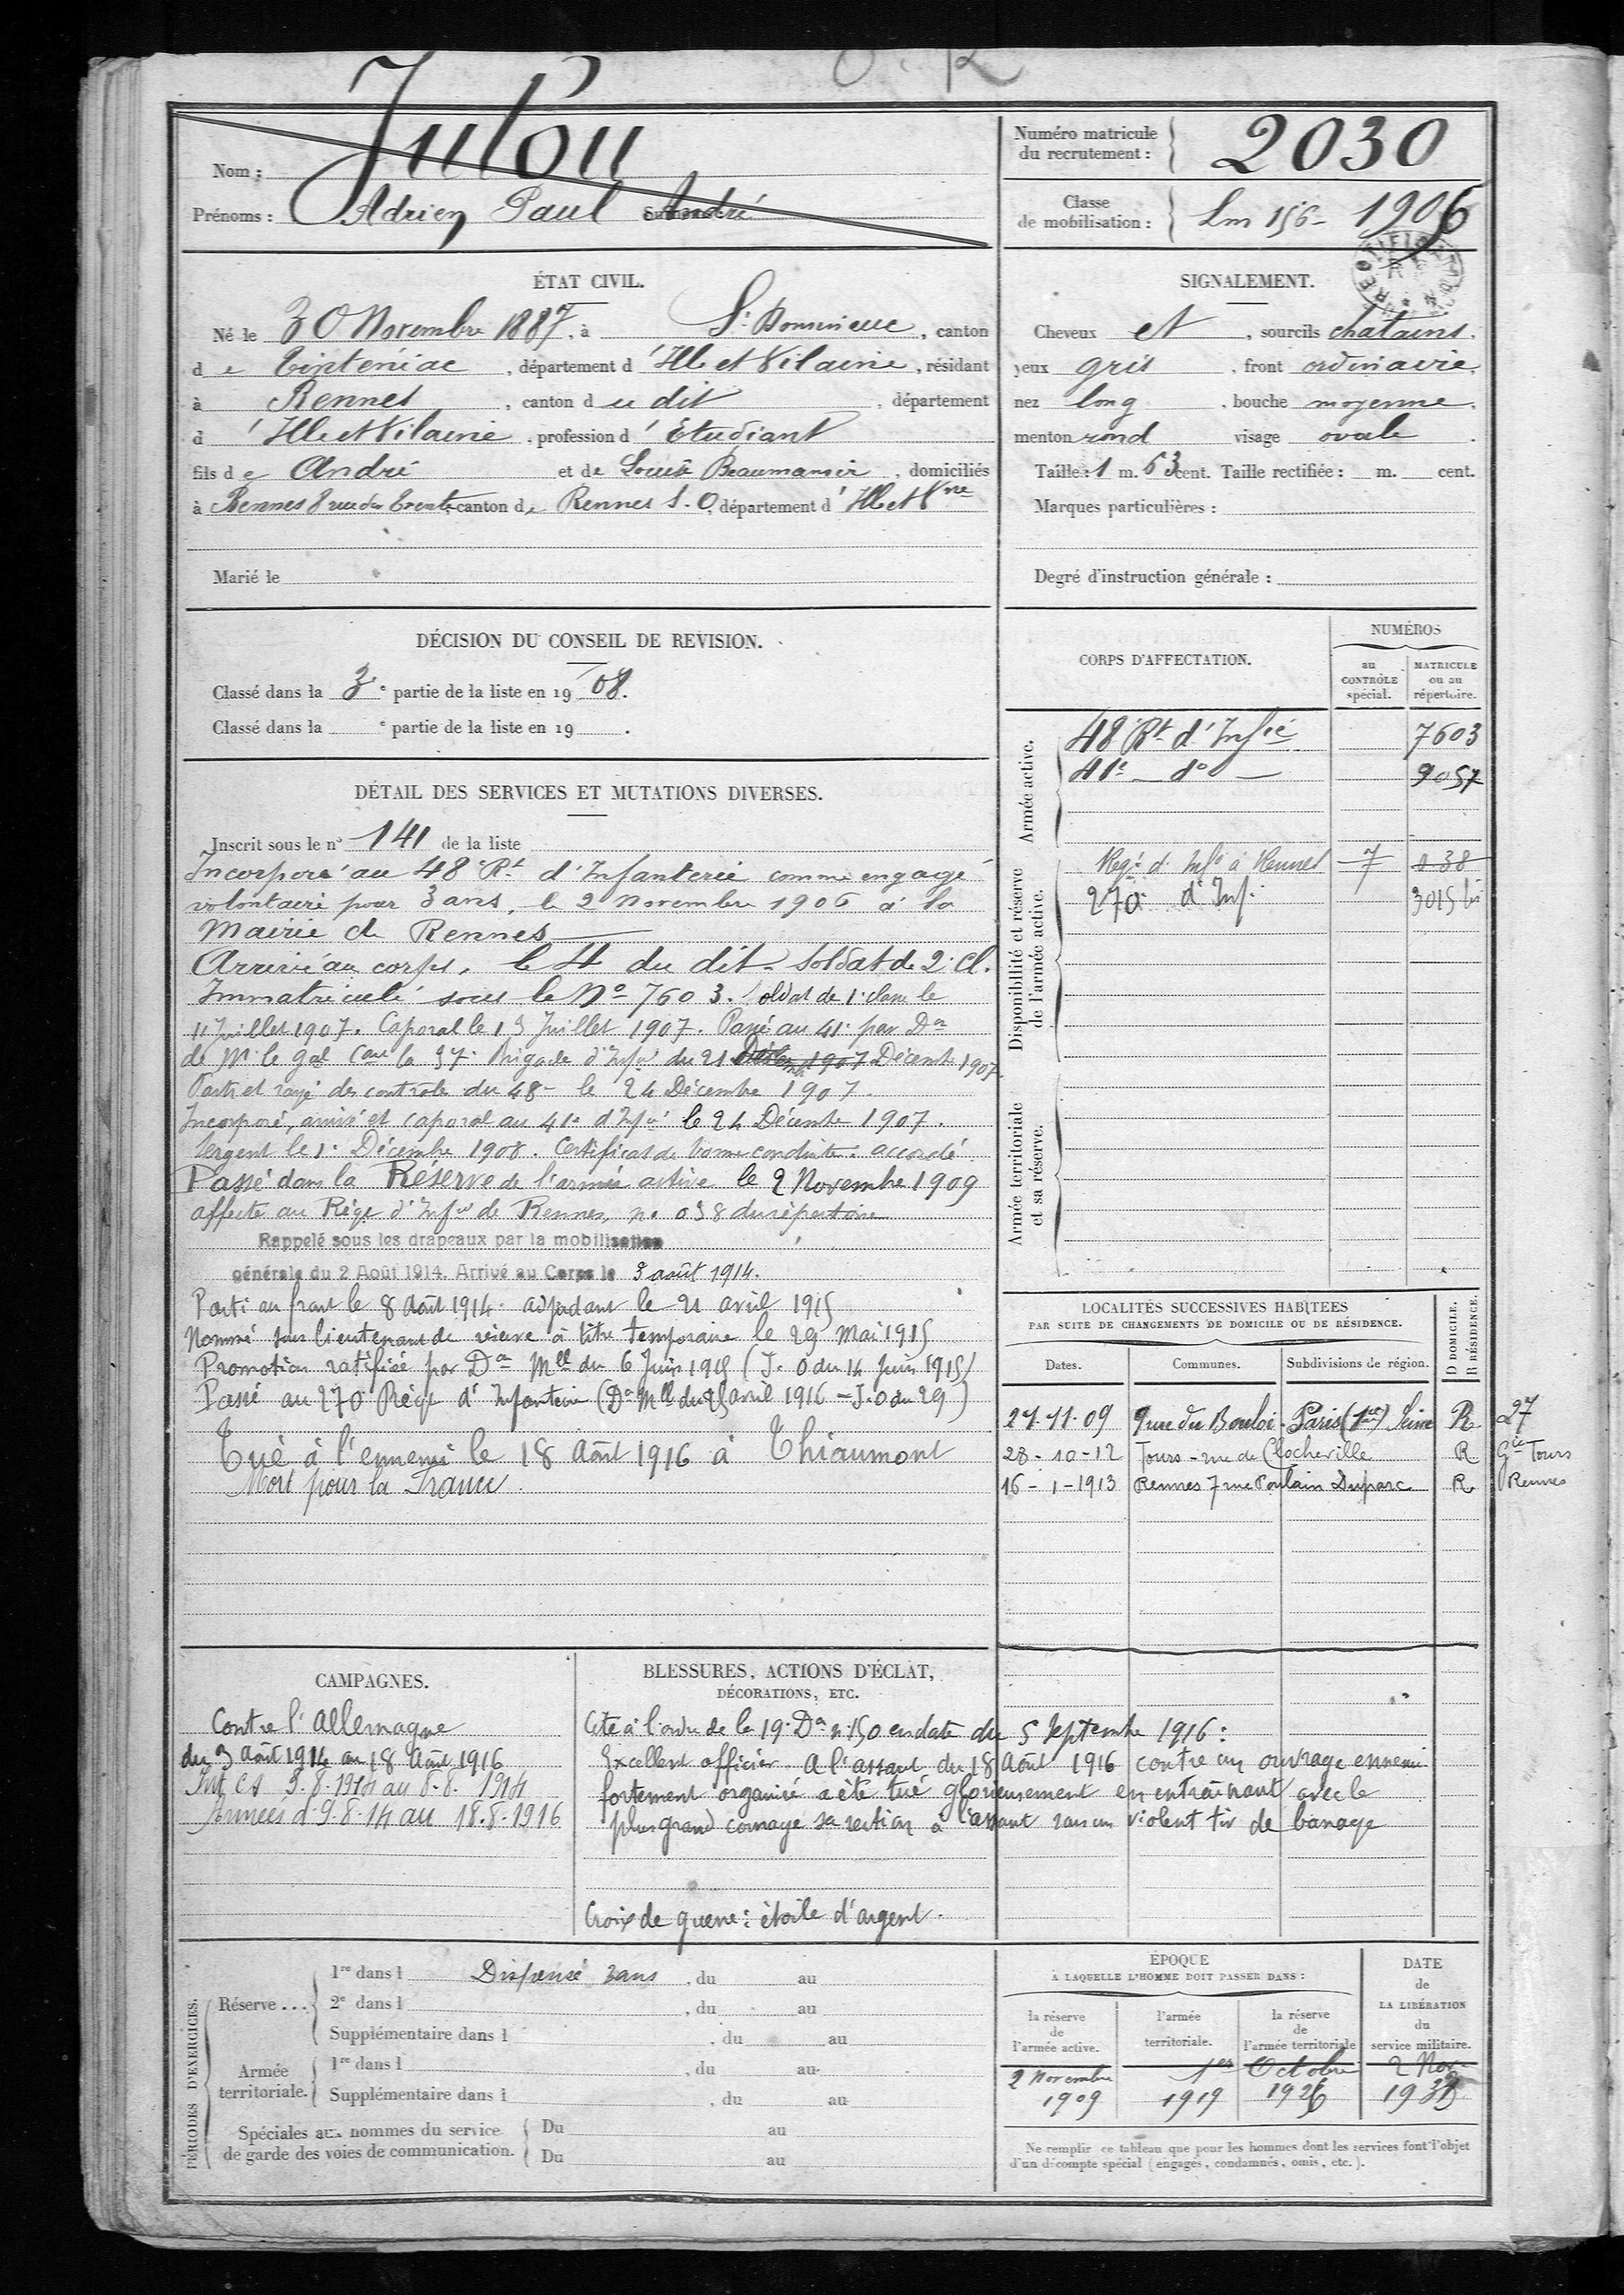 Nom : Julou
Prénoms : Adrien Paul André
Numéro matricule du recrutement : 2030
Classe de mobilisation : Lm 156 - 1906
ÉTAT CIVIL.
Né le 30 Novembre 1887, à St Domineuc, canton
de Tinténiac, département d'Ille et Vilaine, résidant
à Rennes, canton du dit, département
d'Ille et Vilaine, profession d'Etudiant
fils de André et de Louise Beaumanoir, domiciliés
à Rennes 8 rue du canton de Rennes S.O, département d'Ille et Vne
Marié le
SIGNALEMENT.
Cheveux et, sourcils chatains.
yeux gris, front ordinaire,
nez long, bouche moyenne,
menton rond visage ovale.
Taille : 1 m. 63 cent. Taille rectifiée : m. cent.
Marques particulières :
Degré d'instruction générale :
DÉCISION DU CONSEIL DE REVISION.
Classé dans la 3e partie de la liste en 1908.
Classé dans la e partie de la liste en 19 .
DÉTAIL DES SERVICES ET MUTATIONS DIVERSES.
Inscrit sous le n° 141 de la liste
Incorporé au 48e Rt d'Infanterie comme engagé
volontaire pour 3 ans, le 2 novembre 1906 à la
Mairie de Rennes
Arrivé au corps, le 4 du dit. Soldat de 2e Cl.
Immatriculé sous le No 7603. Soldat de 1e classe le
11 Juillet 1907. Caporal le 13 Juillet 1907. Passé au 41e par Don
de Mr le Gal Cant la 37e Brigade d'Infie du 21 Décembre 1907
Parti et rayé des contrôles du 48e le 24 Décembre 1907.
Incorporé, arrivé et caporal au 41e d'Infie le 24 Décembre 1907.
Sergent le 1er Décembre 1908. Certificat de bonne conduite : accordé
Passé dans la Réserve de l'armée active le 2 Novembre 1909
affecté au Régt d'Infie de Rennes, no 038 du répertoire
Rappelé sous les drapeaux par la mobilisation
générale du 2 Août 1914. Arrivé au Corps le 3 août 1914.
Parti au front le 8 Août 1914. adjudant le 21 avril 1915
Nommé sous lieutenant de réserve à titre temporaire le 29 Mai 1915
Promotion ratifiée par Don Mlle du 6 Juin 1915 (J. O du 14 Juin 1915)
Passé au 270e Régt d'Infanterie (Don Mlle du 25 avril 1916 - J. O du 29)
Tué à l'ennemi le 18 Août 1916 à Thiaumont
Mort pour la France.
CORPS D'AFFECTATION.
NUMÉROS
au CONTRÔLE spécial.
MATRICULE ou au répertoire.
Armée active.
48e Rt d'Infie 7603
41e - do - 9057
Disponibilité et réserve de l'armée active.
Régt d'Infie à Rennes 7 038
270e d'Inf. 3015 bis
Armée territoriale et sa réserve.
LOCALITÉS SUCCESSIVES HABITÉES
PAR SUITE DE CHANGEMENTS DE DOMICILE OU DE RÉSIDENCE.
Dates. Communes. Subdivisions de région. D DOMICILE. R RÉSIDENCE.
27-11-09 9 rue du Bouloi - Paris (1er) Seine R 27
28-10-12 Tours - rue de Clocheville R Gie Tours
16-1-1913 Rennes 7 rue Poulain Duparc R Rennes
CAMPAGNES.
Contre l'Allemagne
du 3 août 1914 au 18 Août 1916
Int. C S 3.8.1914 au 8.8.1914
Armées d. 9.8.14 au 18.8.1916
BLESSURES, ACTIONS D'ÉCLAT,
DÉCORATIONS, ETC.
Cité à l'ordre de la 19e Don n° 150 en date du 5 Septembre 1916 :
Excellent officier. A l'assaut du 18 Août 1916 contre un ouvrage ennemi
fortement organisé a été tué glorieusement en entraînant avec le
plus grand courage sa section à l'assaut sous un violent tir de barrage
Croix de guerre : étoile d'argent.
PÉRIODES D'EXERCICES.
Réserve...
1re dans l Dispensé 3 ans, du au
2e dans l , du au
Supplémentaire dans l , du au
Armée territoriale.
1re dans l , du au
Supplémentaire dans l , du au
Spéciales aux hommes du service de garde des voies de communication.
Du au
Du au
ÉPOQUE
À LAQUELLE L'HOMME DOIT PASSER DANS :
la réserve de l'armée active.
l'armée territoriale.
la réserve de l'armée territoriale
DATE de LA LIBÉRATION du service militaire.
2 Novembre 1er Octobre 2 Nov
1909 1919 1926
Ne remplir ce tableau que pour les hommes dont les services font l'objet
d'un décompte spécial (engagés, condamnés, omis, etc.).